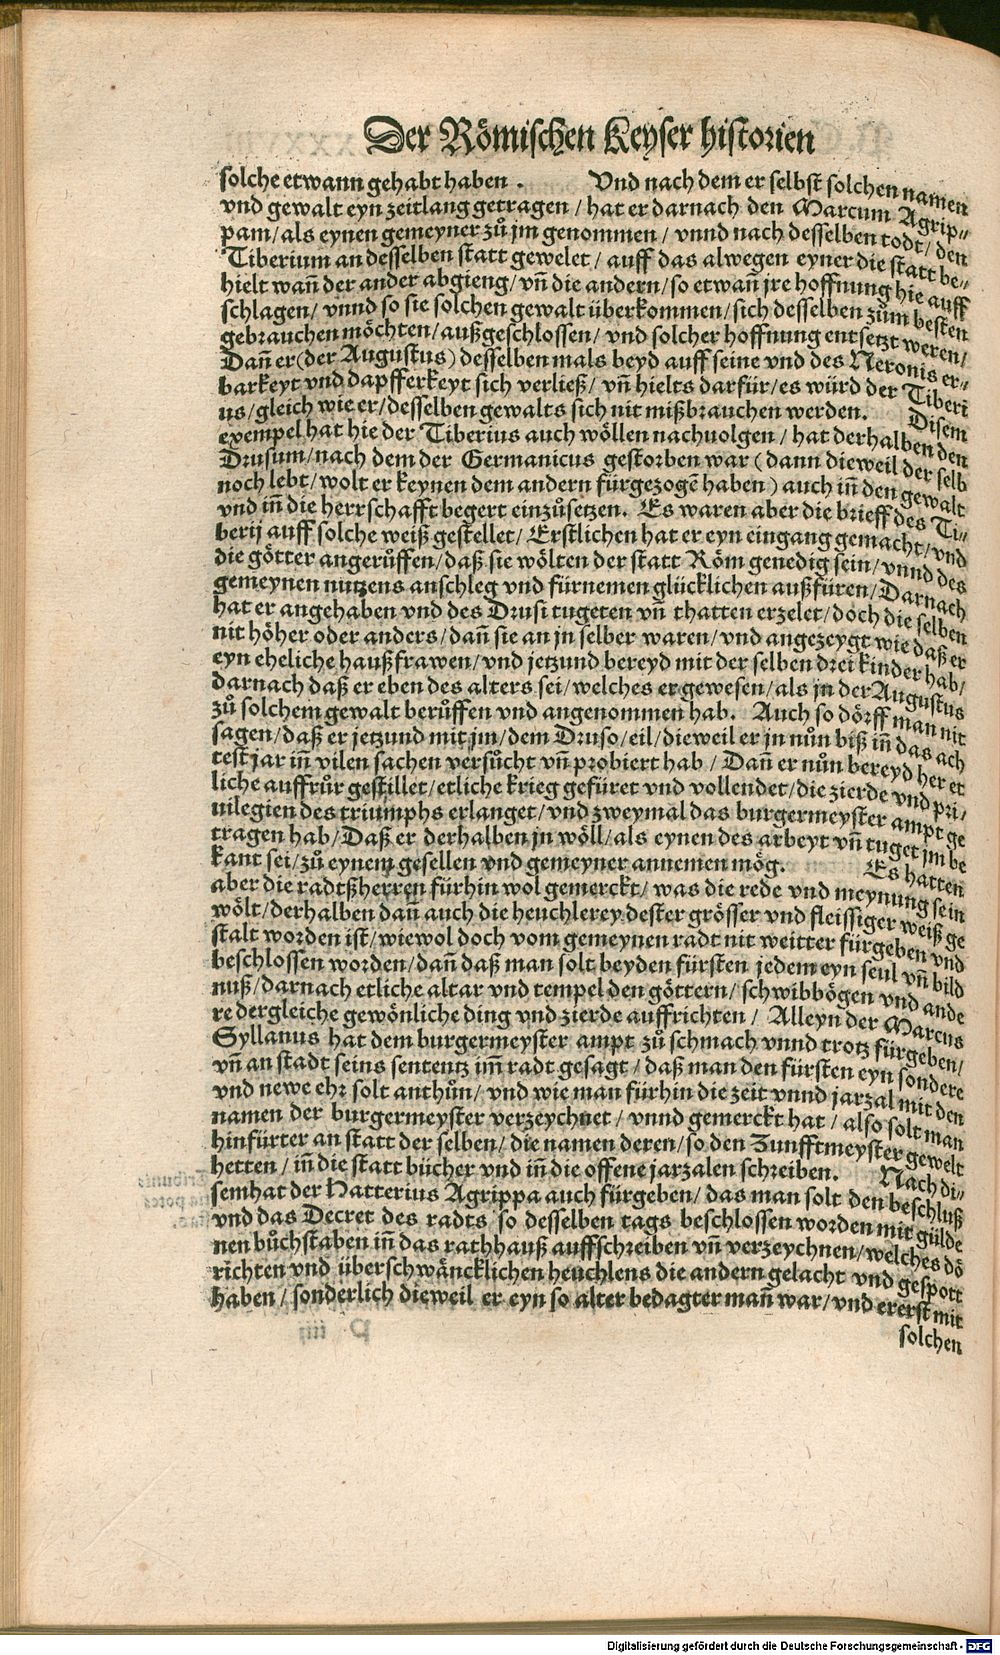 Der Römischen Keyser historien
solche etwann gehabt haben . Vnd nach dem er selbst solchen namen
vnd gewalt eyn zeitlang getragen / hat er darnach den Marcum Agrip⸗
pam / als eynen gemeyner zů jm genommen / vnnd nach desselben todt / den
Tiberium an desselben statt gewelet / auff das alwegen eyner die statt be⸗
hielt wañ der ander abgieng / vñ die andern / so etwañ jre hoffnung hie auff
schlagen / vnnd so sie solchen gewalt überkommen / sich desselben zům besten
gebrauchen möchten / außgeschlossen / vnd solcher hoffnung entsetzt weren /
Dañ er (der Augustus) desselben mals beyd auff seine vnd des Neronis er⸗
barkeyt vnd dapfferkeyt sich verließ / vñ hielts darfür / es würd der Tiberi
us / gleich wie er / desselben gewalts sich nit mißbrauchen werden. Disem
exempel hat hie der Tiberius auch wöllen nachuolgen / hat derhalben den
Drusum / nach dem der Germanicus gestorben war ( dann dieweil der selb
noch lebt / wolt er keynen dem andern fürgezogē haben ) auch iñ den gewalt
vnd iñ die herrschafft begert einzůsetzen. Es waren aber die brieff des Ti⸗
berij auff solche weiß gestellet / Erstlichen hat er eyn eingang gemacht / vnd
die götter angerůffen / daß sie wölten der statt Röm genedig sein / vnnd des
gemeynen nutzens anschleg vnd fürnemen glücklichen außfüren / Darnach
hat er angehaben vnd des Drusi tugeten vñ thatten erzelet / doch die selben
nit höher oder anders / dañ sie an jn selber waren / vnd angezeygt wie daß er
eyn eheliche haußfrawen / vnd jetzund bereyd mit der selben drei kinder hab /
darnach daß er eben des alters sei / welches er gewesen / als jn der Augustus
zů solchem gewalt berůffen vnd angenommen hab. Auch so dörff man nit
sagen / daß er jetzund mit jm / dem Druso / eil / dieweil er jn nůn biß iñ das ach
test jar iñ vilen sachen versůcht vñ probiert hab / Dañ er nůn bereyd her et
liche auffrůr gestillet / etliche krieg gefüret vnd vollendet / die zierde vnd pri⸗
uilegien des triumphs erlanget / vnd zweymal das burgermeyster ampt ge
tragen hab / Daß er derhalben jn wöll / als eynen des arbeyt vñ tuget jm be
kant sei / zů eynem gesellen vnd gemeyner annemen mög. Es hatten
aber die radtßherren fürhin wol gemerckt / was die rede vnd meynung sein
wölt / derhalben dañ auch die heuchlerey dester grösser vnd fleissiger weiß ge
stalt worden ist / wiewol doch vom gemeynen radt nit weitter fürgeben vnd
beschlossen worden / dañ daß man solt beyden fürsten jedem eyn seul vñ bild
nuß / darnach etliche altar vnd tempel den göttern / schwibbögen vnd ande
re dergleiche gewönliche ding vnd zierde auffrichten / Alleyn der Marcus
Syllanus hat dem burgermeyster ampt zů schmach vnnd trotz fürgeben /
vñ an stadt seins sententz im̃ radt gesagt / daß man den fürsten eyn sondere
vnd newe ehr solt anthůn / vnd wie man fürhin die zeit vnnd jarzal mit den
namen der burgermeyster verzeychnet / vnnd gemerckt hat / also solt man
hinfürter an statt der selben / die namen deren / so den Zunfftmeyster gewelt
hetten / iñ die statt bücher vnd iñ die offene jarzalen schreiben. Nach di⸗
semhat der Hatterius Agrippa auch fürgeben / das man solt den beschluß
vnd das Decret des radts / so desselben tags beschlossen worden mit gülde
nen bůchstaben iñ das rathhauß auffschreiben vñ verzeychnen / welches dö
richten vnd überschwäncklichen heuchlens die andern gelacht vnd gespott
haben / sonderlich dieweil er eyn so alter bedagter mañ war / vnd ererst mit
solchen
Digitalisierung gefördert durch die Deutsche Forschungsgemeinschaft - DFG